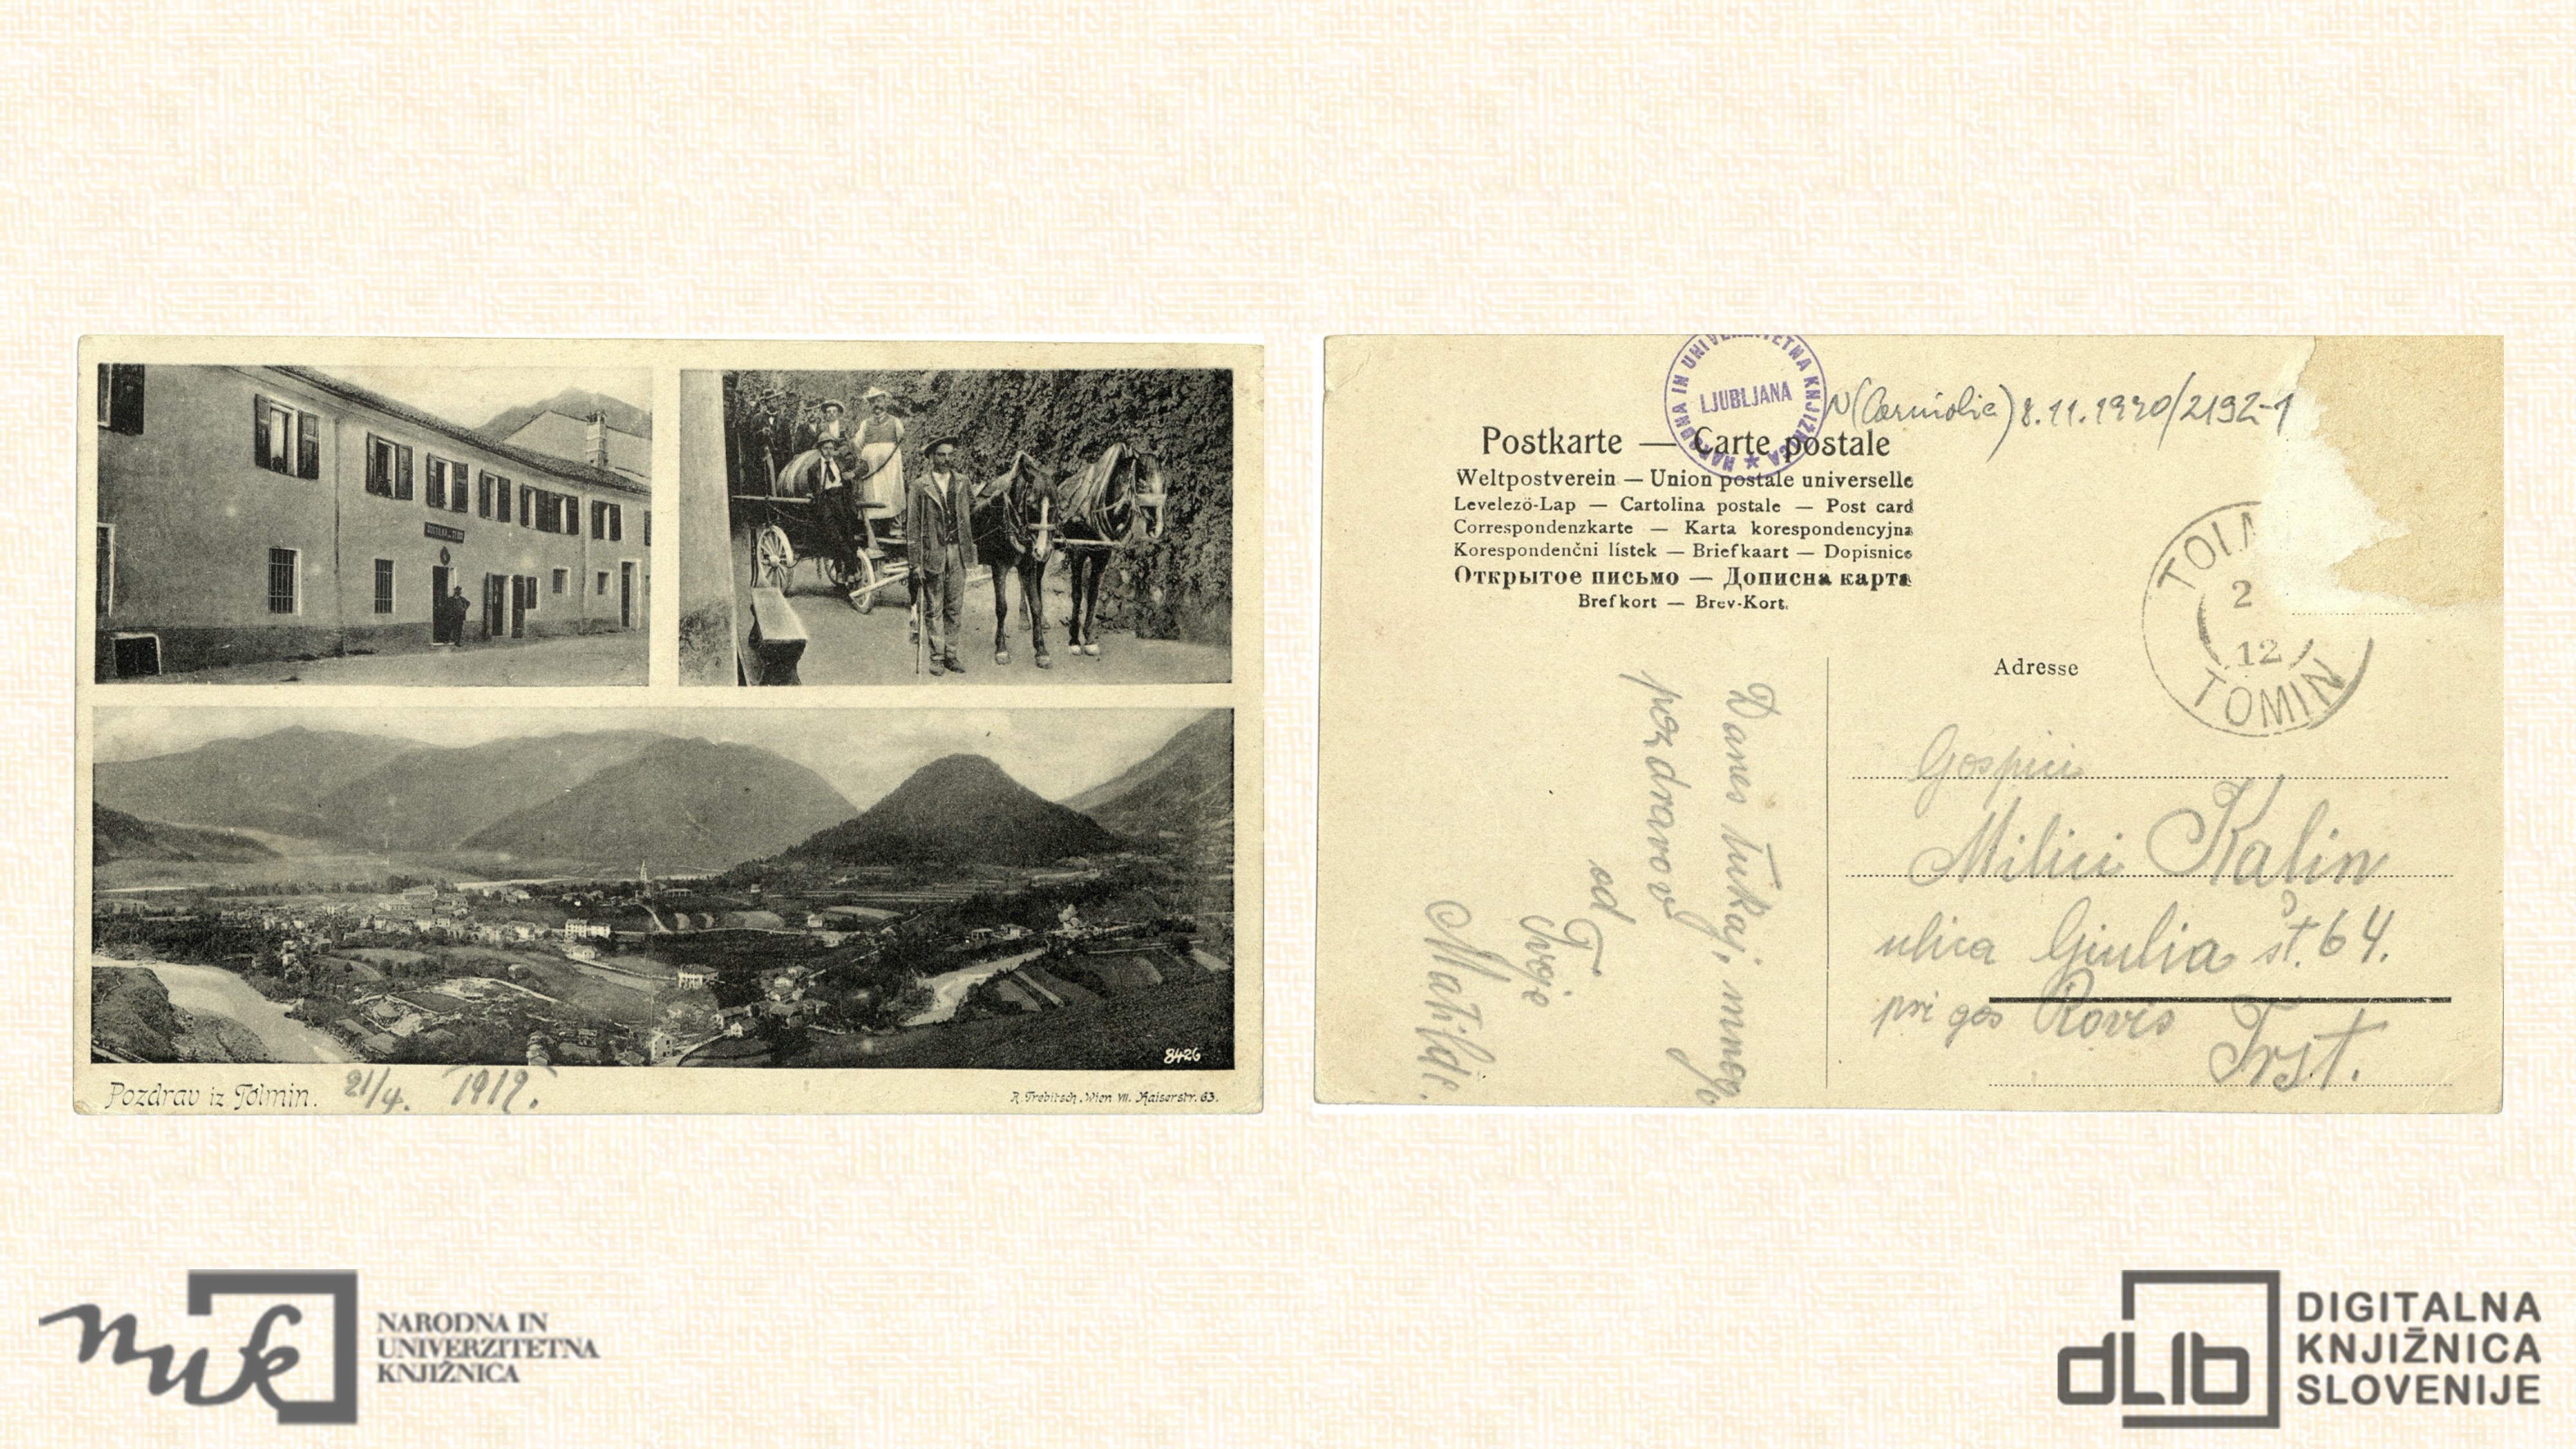 8426
Pozdrav iz Tolmin. 21/4. 1912.
R. Trebitsch, Wien VII. Kaiserstr. 63.
NARODNA IN UNIVERZITETNA KNJIŽNICA
LJUBLJANA
N(Carniolica) 8.11.1990/2192-1
Postkarte — Carte postale
Weltpostverein — Union postale universelle
Levelezö-Lap — Cartolina postale — Post card
Correspondenzkarte — Karta korespondencyjna
Korespondenční lístek — Briefkaart — Dopisnice
Открытое письмо — Дописна карта
Brefkort — Brev-Kort.
Danes tukaj, mnogo
pozdravov
od
Tvoje
Matilde.
TOL
2
12
TOMIN
Adresse
Gospici
Milici Kalin
ulica Giulia št. 64.
pri gos Rovis
Trst.
nuk
NARODNA IN
UNIVERZITETNA
KNJIŽNICA
dLib
DIGITALNA
KNJIŽNICA
SLOVENIJE